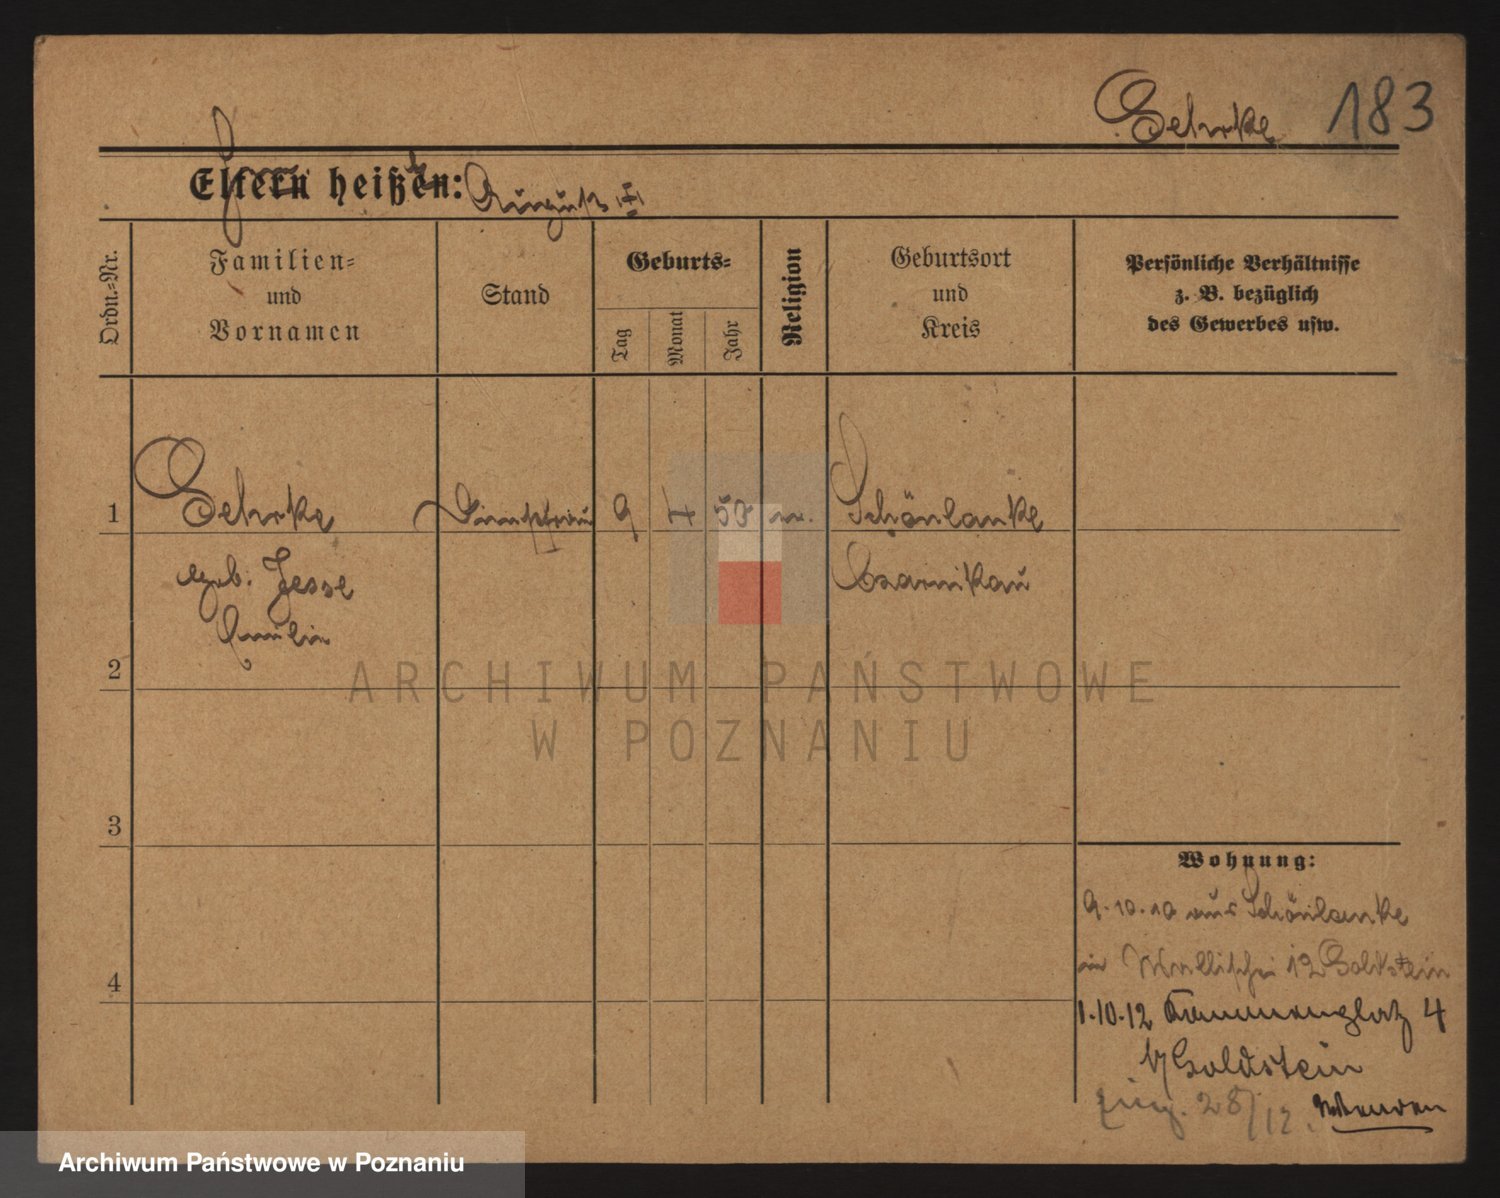 Gehrke 183
Eltern heißen: August
Ordn.-Nr.
Familien-
und
Vornamen
Stand
Geburts-
Tag
Monat
Jahr
Religion
Geburtsort
und
Kreis
Persönliche Verhältnisse
z. B. bezüglich
des Gewerbes usw.
1 Gehrke 9 4 Schönlanke
geb. Jesse Czarnikau
Emilie
2
ARCHIWUM PAŃSTWOWE
W POZNANIU
3
Wohnung:
9.10.10 aus Schönlanke
in Wallischei 12 Goldstein
4
1.10.12 4
b/ Goldstein
28/12. Wenden
Archiwum Państwowe w Poznaniu